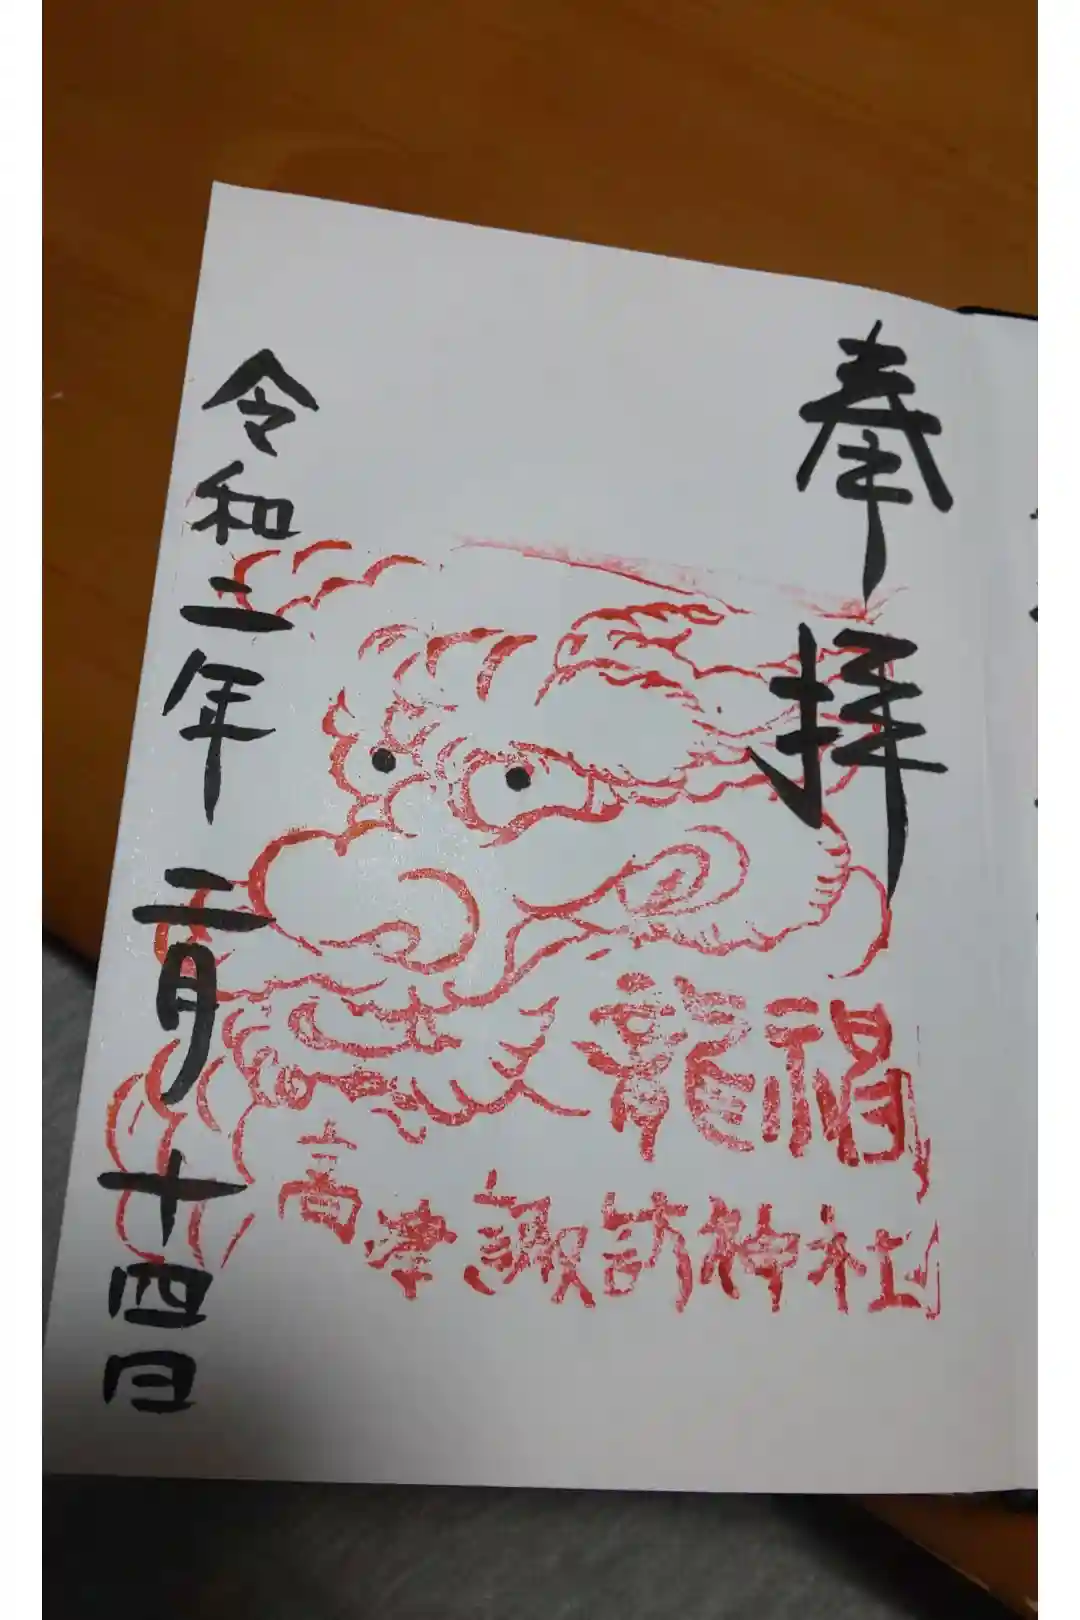 奉拝
龍福
高津諏訪神社
令和二年二月十四日